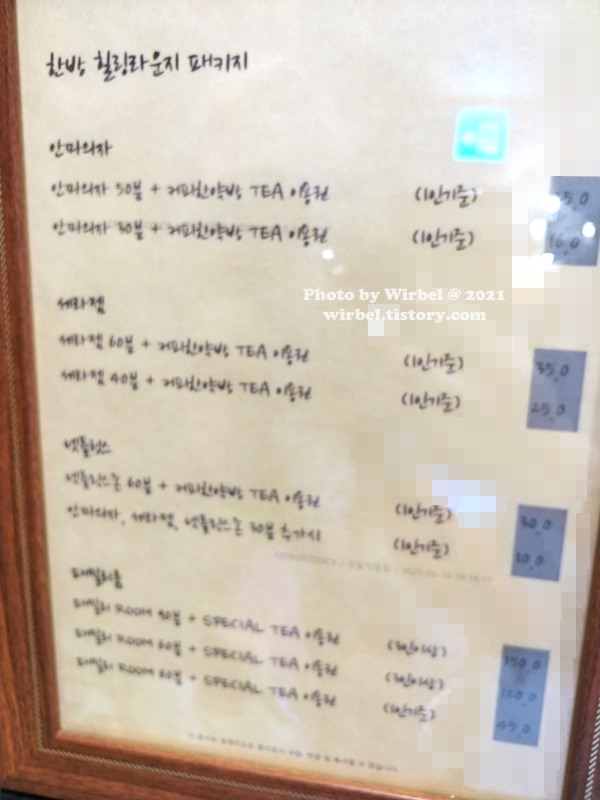 한방 힐링라운지 패키지
안마의자
안마의자 50분 + 커피한약방 TEA 이용권 (1인기준) 5.0
안마의자 30분 + 커피한약방 TEA 이용권 (1인기준) 16.0
Photo by Wirbel @ 2021
wirbel.tistory.com
세라젬
세라젬 60분 + 커피한약방 TEA 이용권 (1인기준) 35.0
세라젬 40분 + 커피한약방 TEA 이용권 (1인기준) 25.0
넷플릭스
넷플릭스존 60분 + 커피한약방 TEA 이용권 (1인기준) 30.0
안마의자, 세라젬, 넷플릭스존 30분 추가시 (1인기준) 10.0
패밀리룸
패밀리 ROOM 90분 + SPECIAL TEA 이용권 (3인이상) 150.0
패밀리 ROOM 60분 + SPECIAL TEA 이용권 (3인이상) 120.0
패밀리 ROOM 60분 + SPECIAL TEA 이용권 (1인기준) 45.0